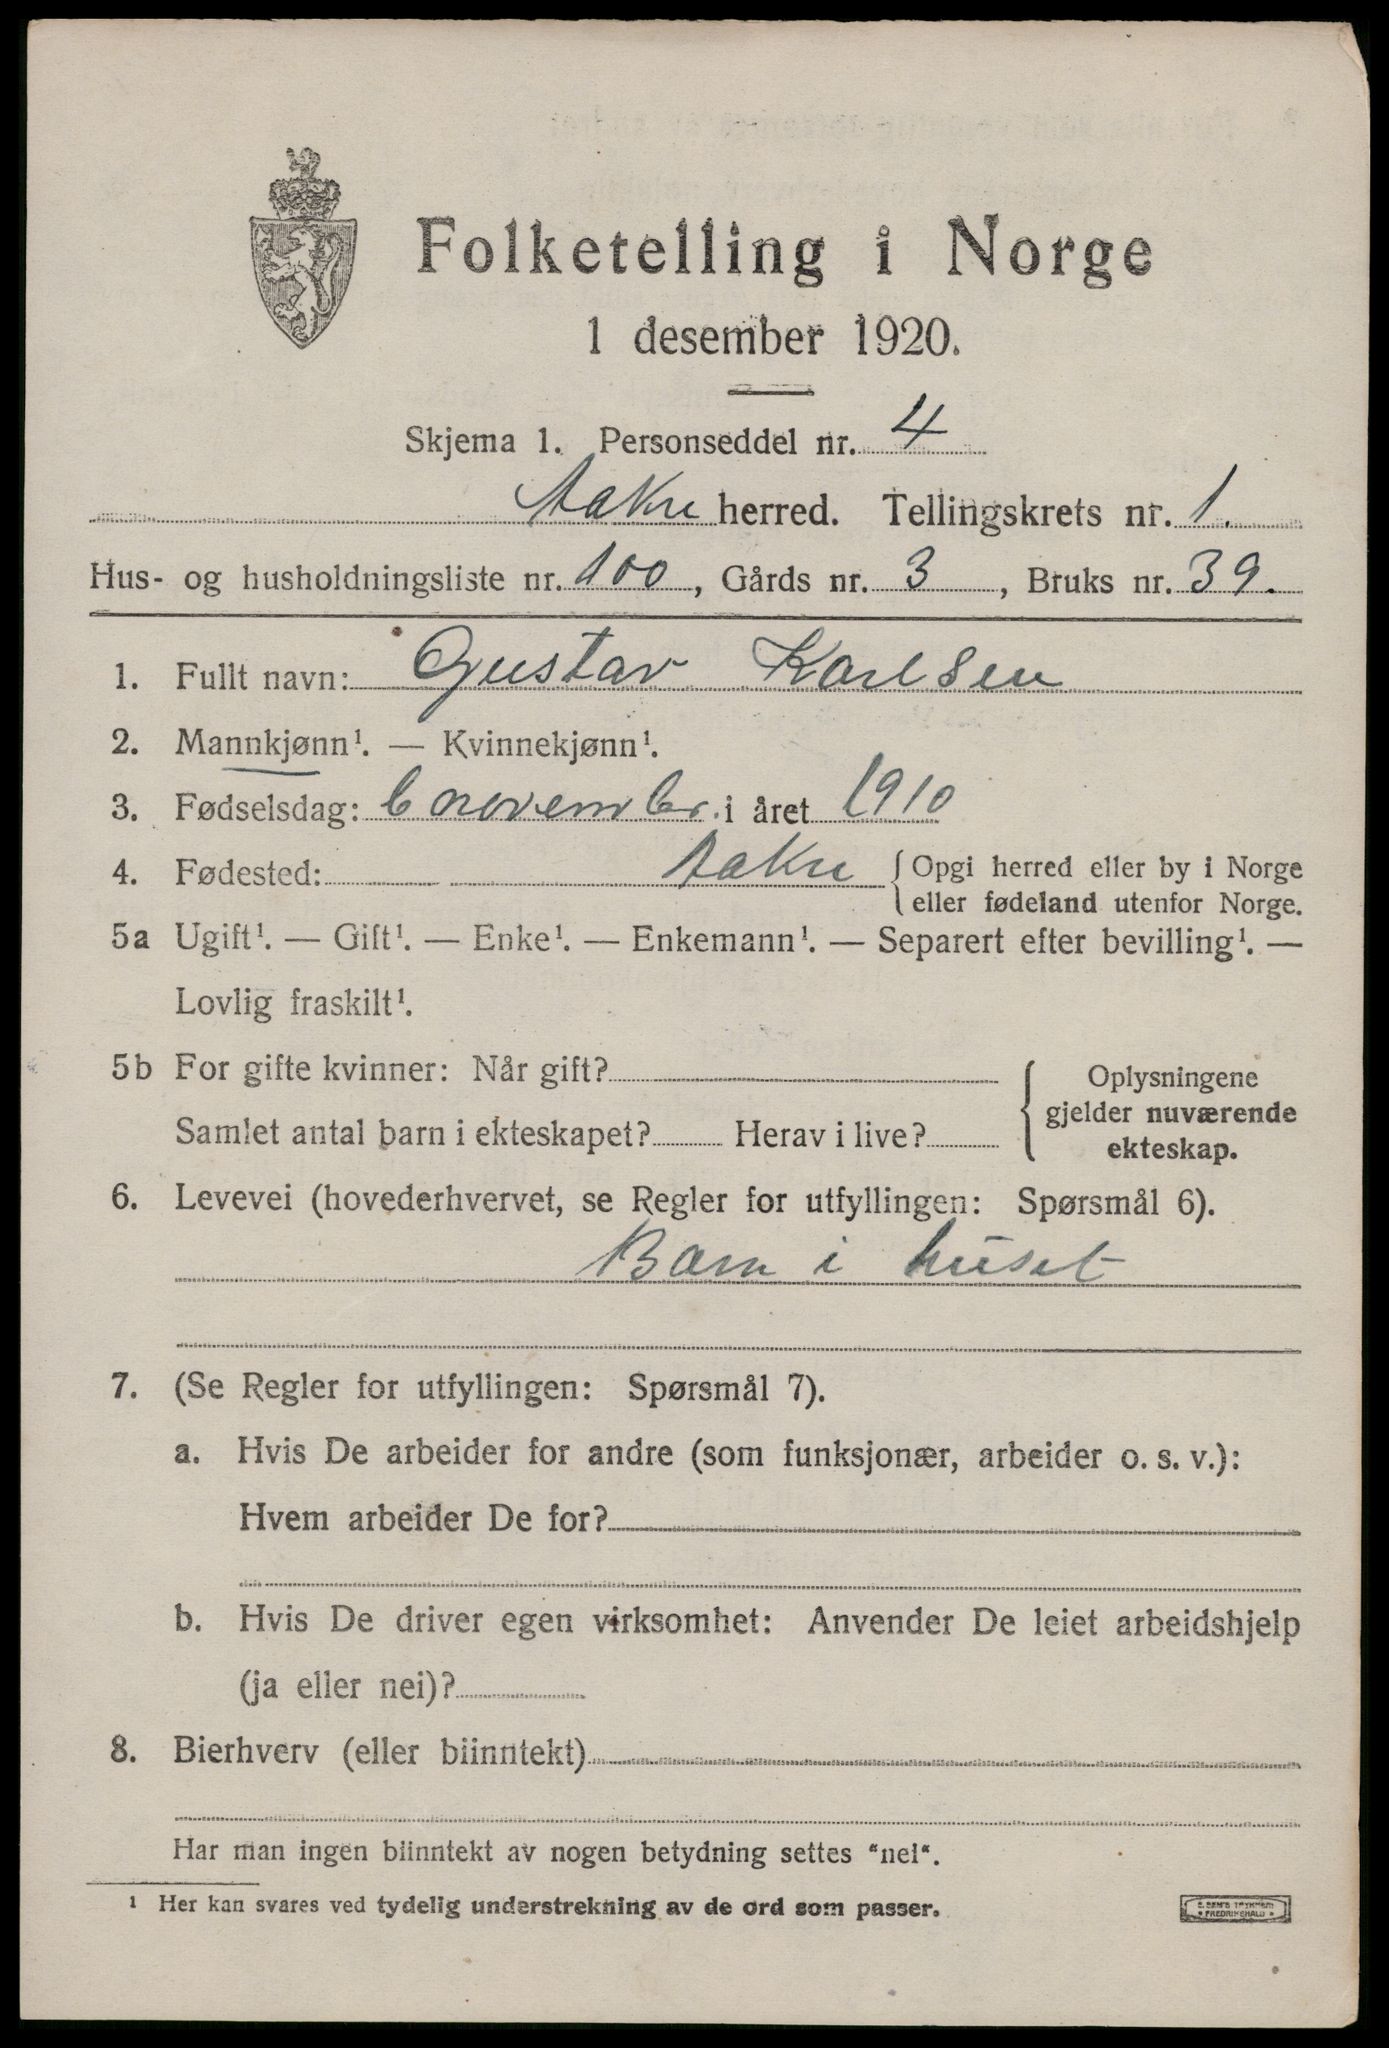 Folketelling i Norge
1 desember 1920.
Skjema 1. Personseddel nr. 4
Aakre herred. Tellingskrets nr. 1.
Hus- og husholdningsliste nr. 100, Gårds nr. 3, Bruks nr. 39.
1. Fullt navn: Gustav Karlsen
2. Mannkjønn¹. — Kvinnekjønn¹.
3. Fødselsdag: 6 november. i året 1910
4. Fødested: Aakre { Opgi herred eller by i Norge
eller fødeland utenfor Norge.
5a Ugift¹. — Gift¹. — Enke¹. — Enkemann¹. — Separert efter bevilling¹. —
Lovlig fraskilt¹.
5b For gifte kvinner: Når gift? { Oplysningene
gjelder nuværende
Samlet antal barn i ekteskapet? Herav i live?
ekteskap.
6. Levevei (hovederhvervet, se Regler for utfyllingen: Spørsmål 6).
Barn i huset
7. (Se Regler for utfyllingen: Spørsmål 7).
a. Hvis De arbeider for andre (som funksjonær, arbeider o. s. v.):
Hvem arbeider De for?
b. Hvis De driver egen virksomhet: Anvender De leiet arbeidshjelp
(ja eller nei)?
8. Bierhverv (eller biinntekt)
Har man ingen biinntekt av nogen betydning settes "nei".
¹ Her kan svares ved tydelig understrekning av de ord som passer.
FREDRIKSHALD